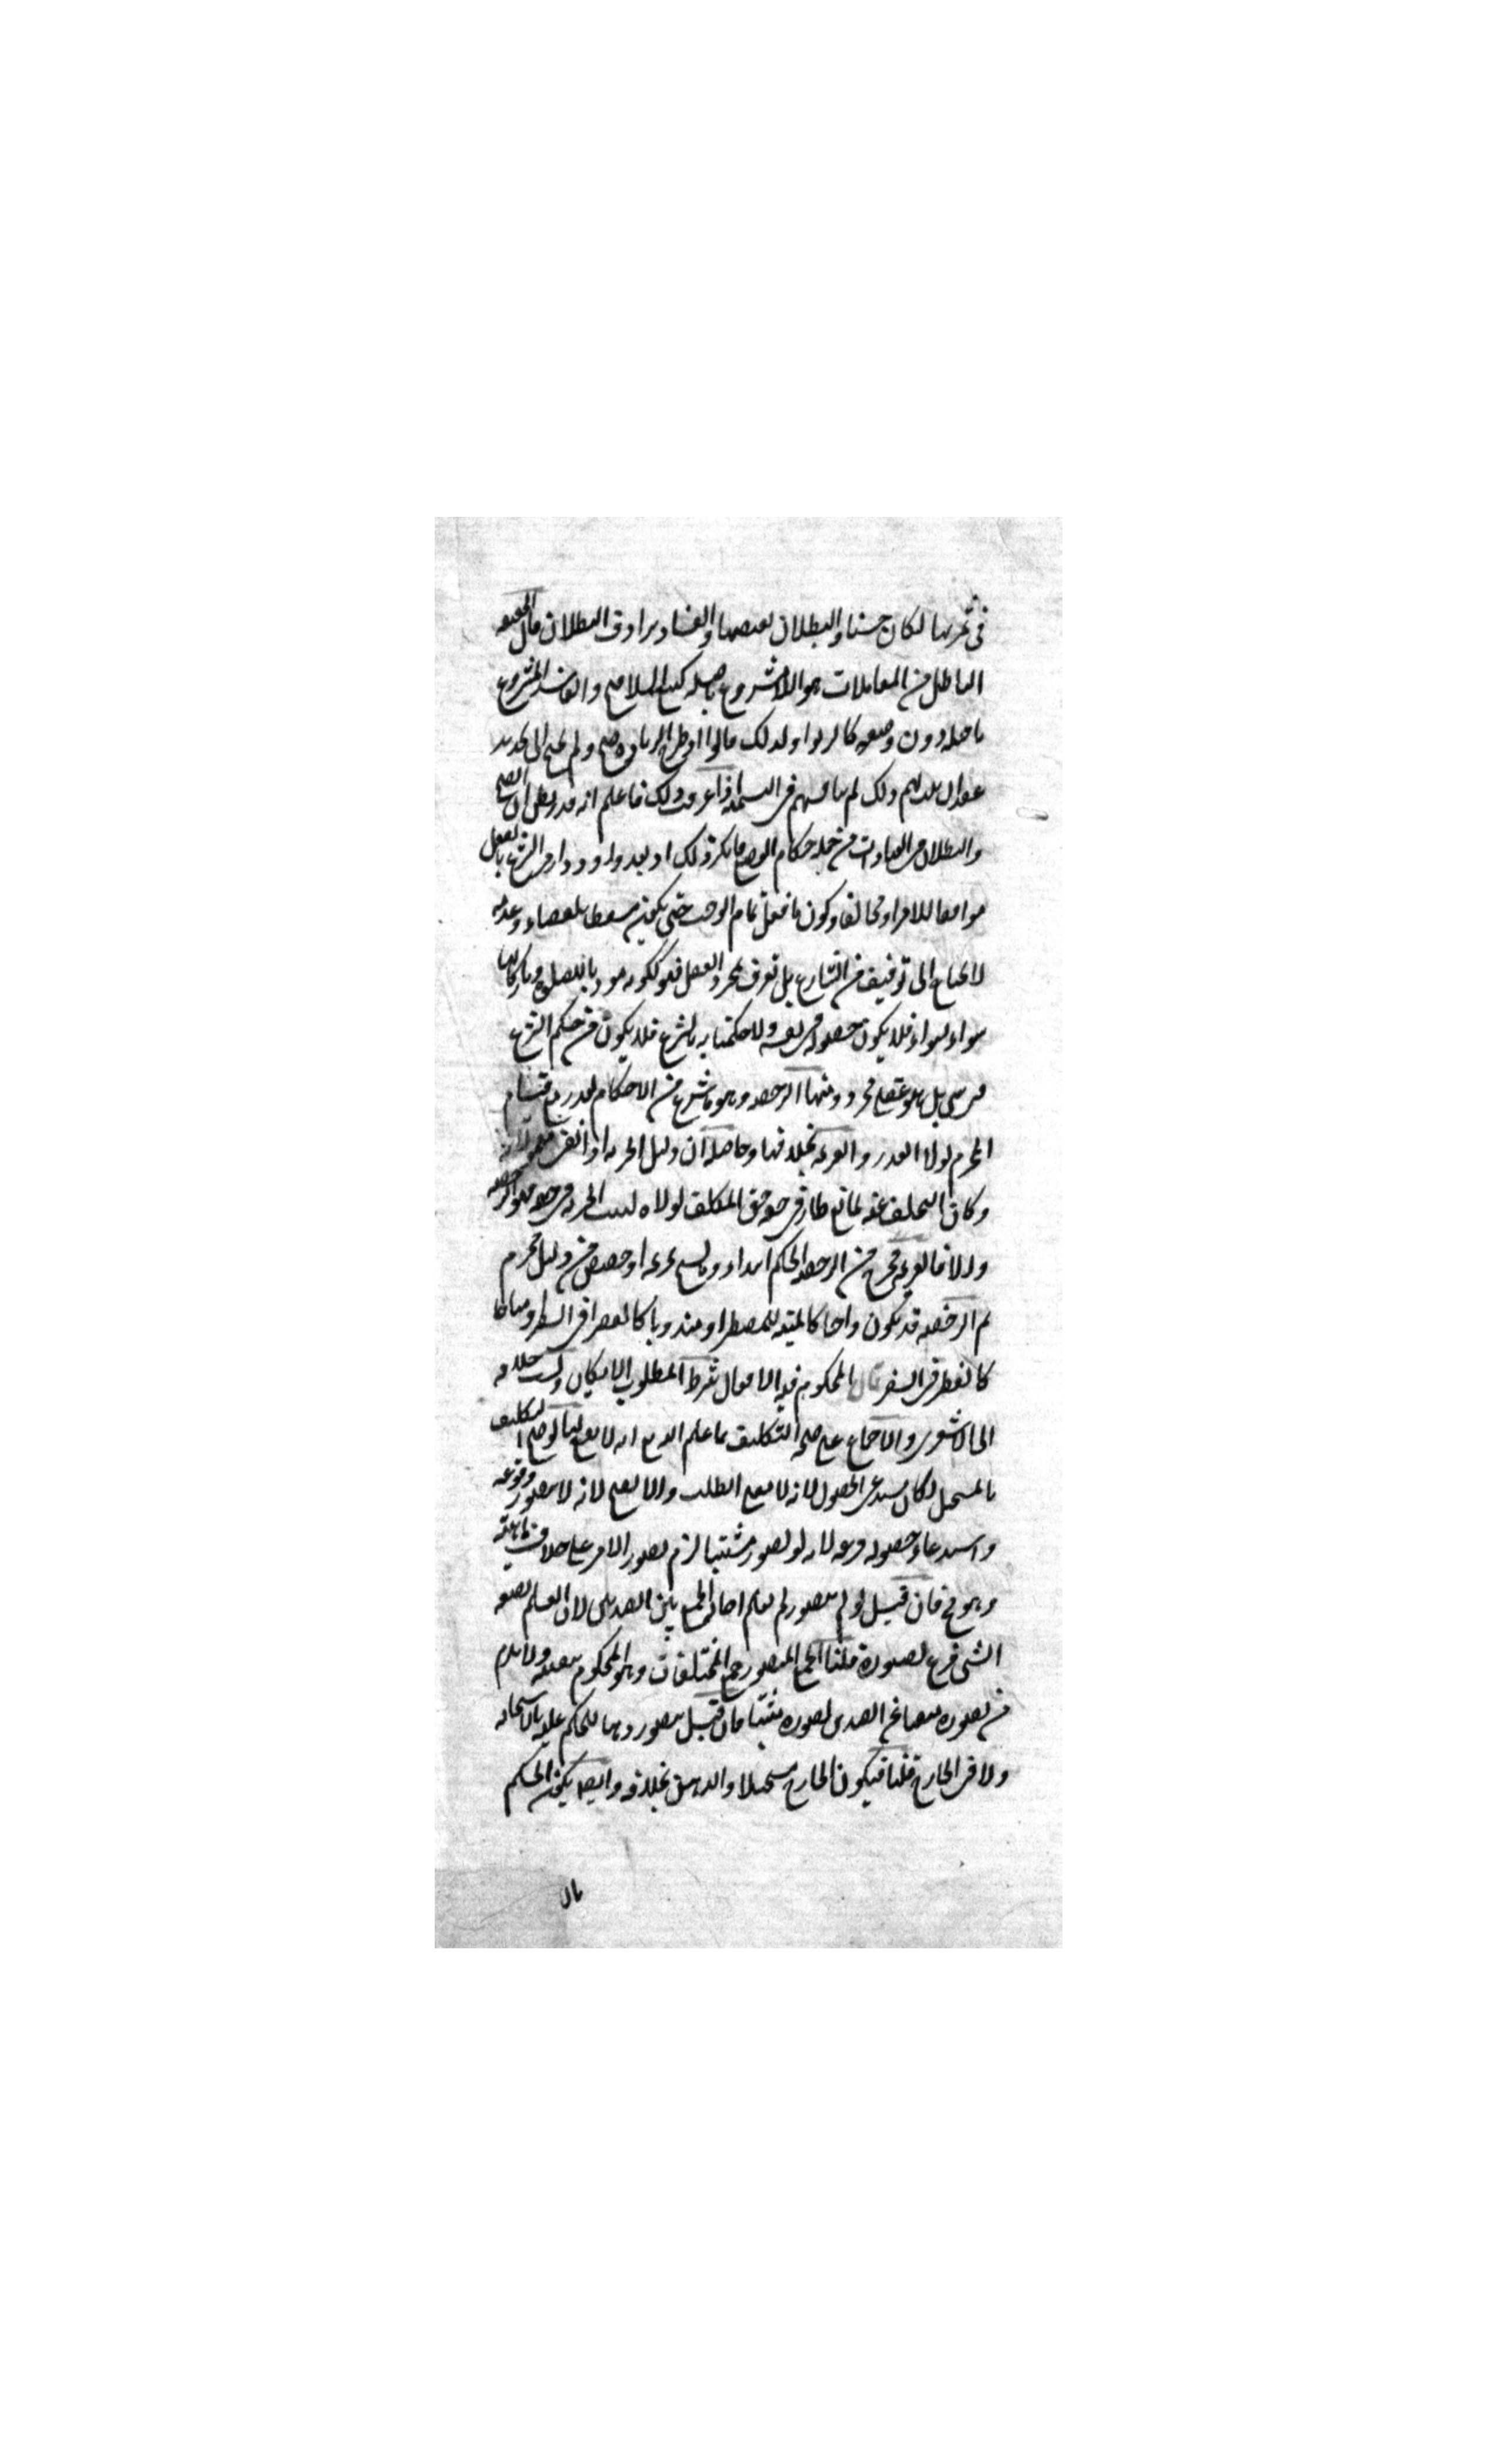 في ثمرتها لكان حسنا والبطلان نقيضها والفساد يرادف البطلان قال الحنفية
الباطل من المعاملات هو الا مشروع باصله كبيع الملاقيح والفاسد المشروع
باصله دون وصفه كالربوا ولذلك قالوا اذا طرح الزيادة صح ولم يحتج الى تجديد
عقد ان ثبت لهم ذلك لم نناقشهم في التسمية اذا عرفت ذلك فاعلم انه قد يظن ان الصحة
والبطلان في العبادات من جملة احكام الوضع فانكر ذلك اذ بعد ورود امر الشرع بالفعل
موافقا للامر او مخالفا وكون ما فعل تمام الواجب حتى يكون مسقطا للقضاء وعدمه
لا يحتاج الى توقيف من الشارع بل تعرف بمجرد العقل فهو ككونه مؤديا للصلوة وتاركا لها
سواء بسواء فلا يكون حصوله في نفسه ولا حكمنا به بالشرع فلا يكون من حكم الشرع
في شئ بل هو عقلي مجرد ومنها الرخصة وهو ما شرع من الاحكام لعذر مع قيام
المحرم لولا العذر والعزيمة بخلافها وحاصله ان دليل الحرمة اذا
وكان التخلف عنه لمانع طار في حق المكلف لولاه لثبت الحرمة في حقه فهو الرخصة
والا فالعزيمة فخرج من الرخصة الحكم ابتداء وما نسخ تحريمه او خصص من دليل محرم
ثم الرخصة قد تكون واجبا كالميتة للمضطر او مندوبا كالقصر في السفر ومباحا
كالفطر في السفر قال المحكوم فيه الافعال شرط المطلوب الامكان ونسب خلافه
الى الاشعري والاجماع على صحة التكليف بما علم الله انه لا يقع لنا لو صح التكليف
بالمستحيل لكان مستدعى الحصول لانه معنى الطلب والا يصح لانه لا يتصور وقوعه
واستدعاء حصوله فرعه لانه لو تصور مثبتا لزم تصور الامر على خلاف ماهيته
وهو مح فان قيل لو لم يتصور لم يعلم احالة الجمع بين الضدين لان العلم بصفة
الشئ فرع تصوره قلنا الجمع المتصور جمع المختلفات وهو المحكوم بنفيه ولا يلزم
من تصوره منفيا عن الضدين تصوره مثبتا فان قيل يتصور ذهنا للحكم عليه بالاستحالة
ولا في الخارج قلنا فيكون الخارج مستحيلا والذهن بخلافه وايضا يكون الحكم